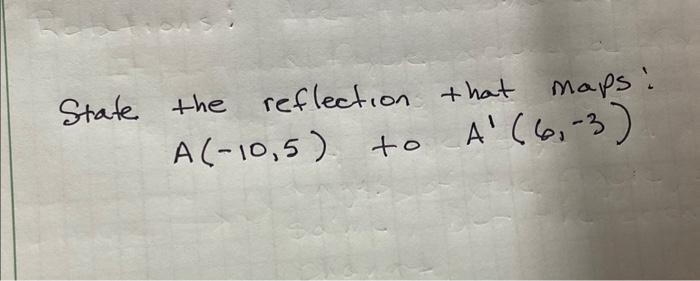 State the reflection that maps:
A(-10,5) to A'(6,-3)